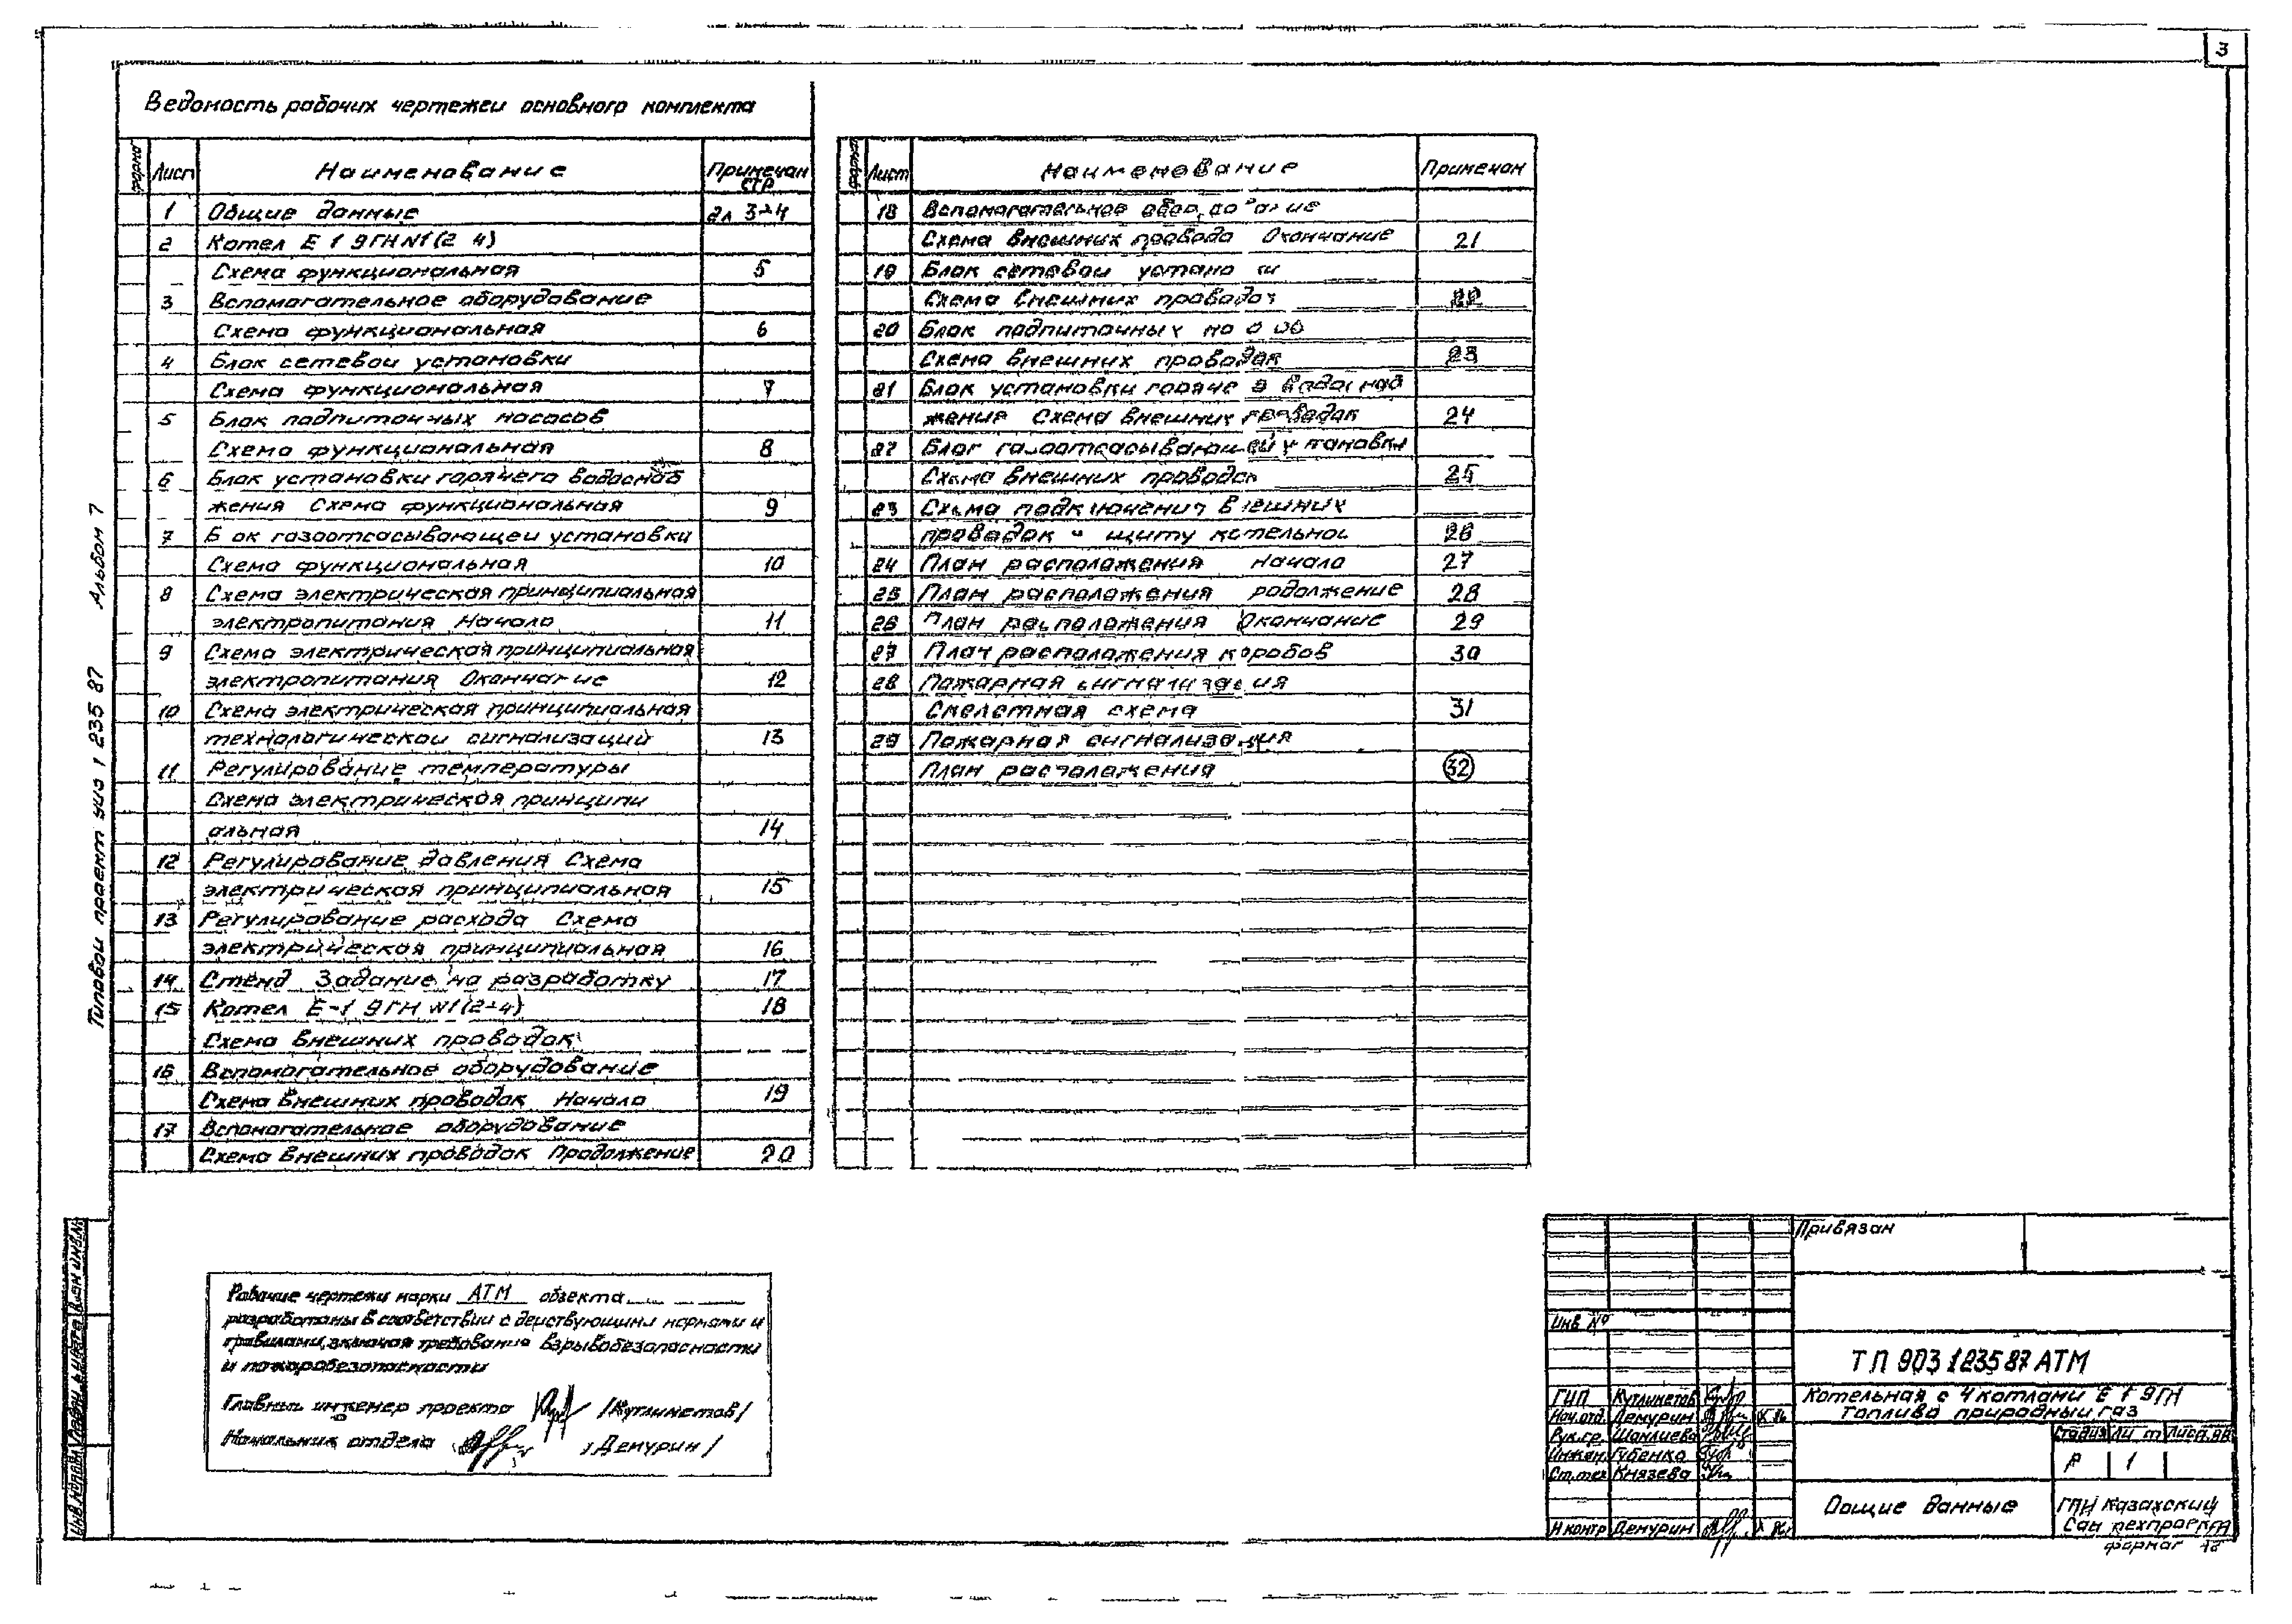 3
Ведомость рабочих чертежей основного комплекта
Лист Наименование Примечан стр
1 Общие данные ал 3-4
2 Котел Е 1 9ГН N1(2 4)
Схема функциональная 5
3 Вспомогательное оборудование
Схема функциональная 6
4 Блок сетевой установки
Схема функциональная 7
5 Блок подпиточных насосов
Схема функциональная 8
6 Блок установки горячего водоснаб
жения Схема функциональная 9
7 Б ок газоотсасывающей установки
Схема функциональная 10
8 Схема электрическая принципиальная
электропитания Начало 11
9 Схема электрическая принципиальная
электропитания Окончание 12
10 Схема электрическая принципиальная
технологической сигнализаций 13
11 Регулирование температуры
Схема электрическая принципи
альная 14
12 Регулирование давления Схема
электрическая принципиальная 15
13 Регулирование расхода Схема
электрическая принципиальная 16
14 Стенд Задание на разработку 17
15 Котел Е-1 9ГН N1(2-4) 18
Схема внешних проводок
16 Вспомогательное оборудование
Схема внешних проводок Начало 19
17 Вспомогательное оборудование
Схема внешних проводок Продолжение 20
Лист Наименование Примечан
18 Вспомогательное
Схема внешних провода Окончание 21
19 Блок сетевой устано ки
Схема внешних проводок 22
20 Блок подпиточных
Схема внешних проводок 23
21 Блок установки горяче о водоснаб
жения Схема внешних проводок 24
22 Блок газоотсасывающей установки
Схема внешних проводок 25
23 Схема подключения внешних
проводок к щиту котельной 26
24 План расположения Начало 27
25 План расположения родолжение 28
26 План расположения Окончание 29
27 План расположения коробов 30
28 Пожарная сигнализация
Скелетная схема 31
29 Пожарная сигнализация
План расположения 32
Типовой проект 903 1 235 87 Альбом 7
Рабочие чертежи марки АТМ объекта
разработаны в соответствии с действующими нормами и
правилами, включая требования взрывобезопасности
и пожаробезопасности
Главный инженер проекта /Кутлиметов/
Начальник отдела /Демурин/
Привязан
Инв №
ТП 903 1 235 87 АТМ
ГИП Кутлиметов
Нач.отд. Демурин
Рук.гр. Шанлиева
Инжен. Губенко
Ст.тех Князева
Н контр Демурин
Котельная с 4 котлами Е 1 9ГН
Топливо природный газ
Стадия Ли т Листов
Р 1
Общие данные
ГПИ Казахский
Сантехпроект
формат